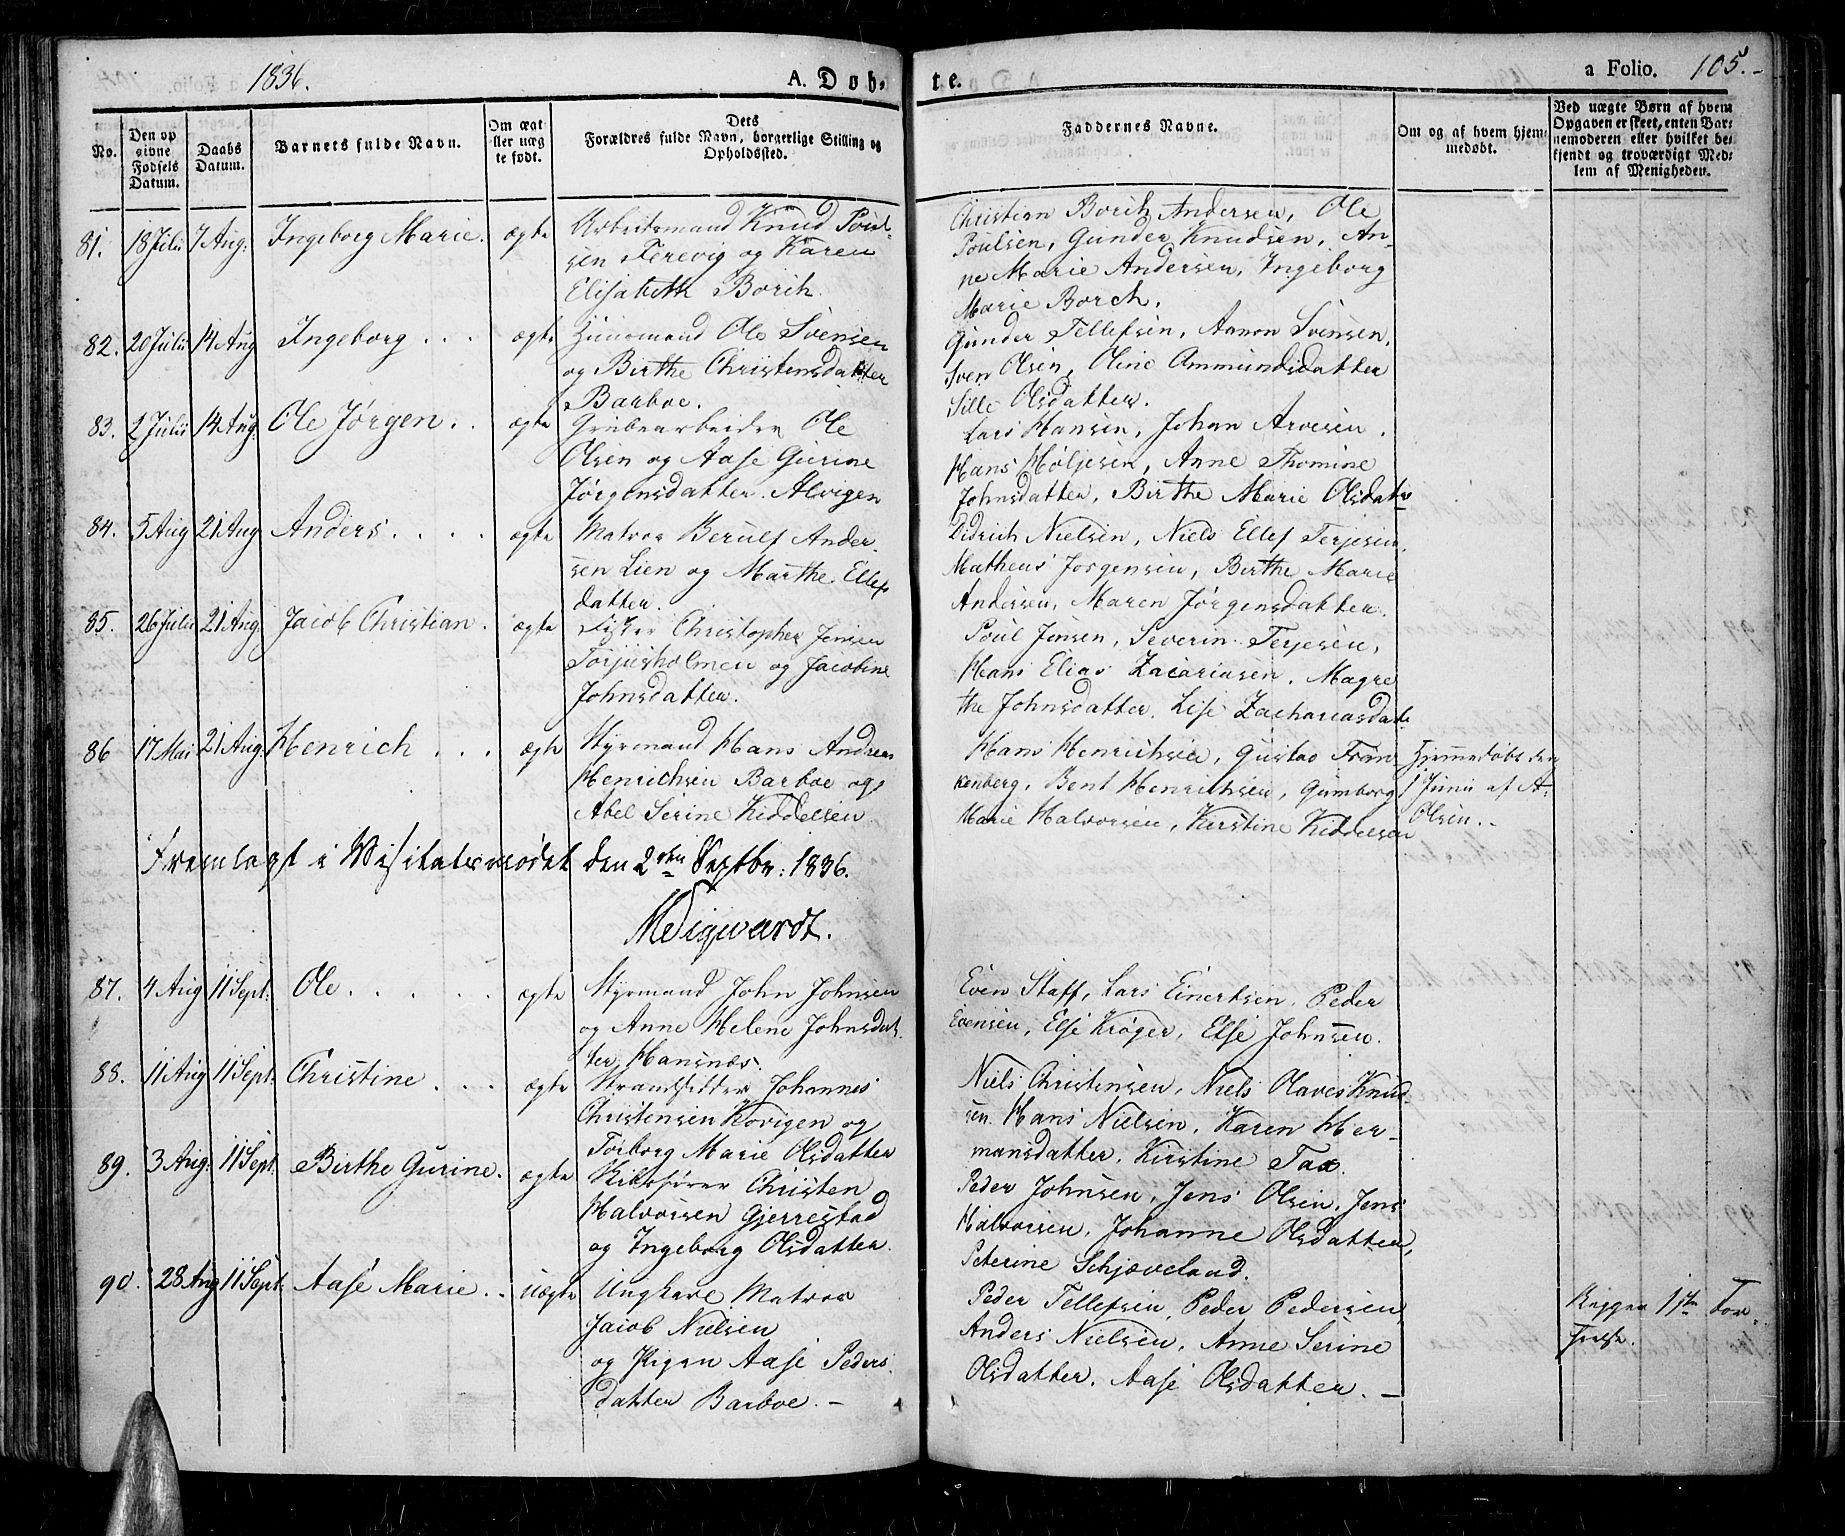 1836.
A. Døb-
te.
a Folio. 105.
No.
Den opgivne Fødsels Datum.
Daabs Datum.
Barnets fulde Navn.
Om ægte eller uægte født.
Dets Forældres fulde Navn, borgerlige Stilling og Opholdssted.
Faddernes Navne.
Om og af hvem hjemmedøbt.
Ved uægte Børn af hvem Opgaven er skeet, enten Barnemoderen eller hvilket bekjendt og troværdigt Medlem af Menigheden.
81. 18 Julii 7 Aug: Ingeborg Marie. ægte Arbeitsmand Knud Poul-
sen Terevig og Karen
Elisabeth Borch.
Christian Borch Andersen, Ole
Poulsen, Gunder Knudsen, An-
ne Marie Andersen, Ingeborg
Marie Borch.
82. 20 Julii 14 Aug Ingeborg . . . ægte Huusmand Ole Svensen
og Birthe Christensdatter
Barboe.
Gunder Tellefsen, Aanon Svensen,
Sven Olsen, Oline Ammundsdatter
Sille Olsdatter.
83. 2 Julii 14 Aug: Ole Jørgen . . ægte Grubearbeider Ole
Olsen og Aase Gurine
Jørgensdatter. Alvigen
Lars Hansen, Johan Arvesen.
Hans Høljesen, Anne Thomine
Johnsdatter, Birthe Marie Olsdatr
84. 5 Aug 21 Aug Anders . . . . ægte Matros Berulf Ander-
sen Lien og Marthe Ellefs
datter.
Didrich Nielsen, Niels Ellef Terjesen,
Matheus Jørgensen, Birthe Marie
Andersen, Maren Jørgensdatter.
85. 26 Julii 21 Aug. Jacob Christian. ægte Fisker Christopher Jensen
Torjusholmen og Jacobine
Johnsdatter.
Poul Jensen, Severin Terjesen,
Hans Elias Zacariasen, Magre
the Johnsdatter, Lise Zachariasdatr
86 17 Mai 21 Aug Henrich . . . ægte Styrmand Hans Andreas
Henrichsen Barboe og
Abel Serine Kiddelsen
Hans Henrichsen, Gustav Fran
kenberg, Bent Henrichsen, Gunborg
Marie Halvorsen, Kirstine Kiddelsen
Hjemmedøbt den
1 Junii af A.
Olsen.
Fremlagt i Visitatsmødet den 2den Septbr: 1836.
MSigwardt.
87. 4 Aug 11 Sept: Ole . . . . . ægte Styrmand John Johnsen
og Anne Helene Johnsdat
ter Hansnæs.
Even Staff, Lars Einertsen, Peder
Evensen, Else Krøger, Else Johnsen.
88. 11 Aug 11 Sept. Christine . . . ægte Strandsitter Johannes
Christensen Korigen og
Torborg Marie Olsdatter
Niels Christensen, Niels Olaves Knud
sen. Hans Nielsen, Karen Her-
mansdatter, Kirstine Tax.
89. 3 Aug. 11 Sept. Birthe Gurine. ægte Skibsfører Christen
Halvorsen Gjerrestad
og Ingeborg Olsdatter.
Peder Johnsen, Jens Olsen, Jens
Halvorsen, Johanne Olsdatter,
Peterine Schjæveland.
90. 28 Aug 11 Sept. Aase Marie . . uægte Ungkarl Matros
Jacob Nielsen
og Pigen Aase Peders
datter Barboe. –
Peder Tellefsen, Peder Pedersen
Anders Nielsen, Anne Serine
Olsdatter, Aase Olsdatter. –
Begges 1ste For-
seelse.